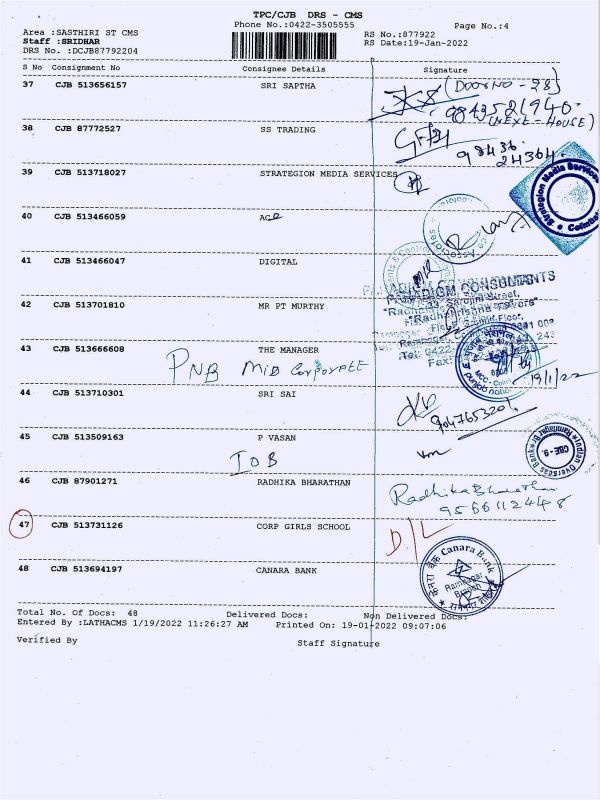 TPC/CJB DRS - CMS
Phone No.:0422-3505555
Page No.:4
Area :SASTHIRI ST CMS
RS No.:877922
Staff :SRIDHAR
RS Date:19-Jan-2022
DRS No. :DCJB87792204
S No Consignment No Consignee Details Signature
37 CJB 513656157 SRI SAPTHA
(DOOR NO - 28)
9843521940
(NEXT-HOUSE)
38 CJB 87772527 SS TRADING
98436
24364
39 CJB 513718027 STRATEGION MEDIA SERVICES
Strategion Media Services
40 CJB 513466059 ACE
41 CJB 513466047 DIGITAL
PARADIGM CONSULTANTS
42 CJB 513701810 MR PT MURTHY
43 CJB 513666608 THE MANAGER
PNB MID CORPORATE
19/1/22
44 CJB 513710301 SRI SAI
9047653201
45 CJB 513509163 P VASAN
IOB
Indian Overseas Bank
46 CJB 87901271 RADHIKA BHARATHAN
Radhika Bharathan
9566112448
47 CJB 513731126 CORP GIRLS SCHOOL
D/L
48 CJB 513694197 CANARA BANK
Canara Bank
Ramnagar
Branch
Total No. Of Docs: 48 Delivered Docs: Non Delivered Docs:
Entered By :LATHACMS 1/19/2022 11:26:27 AM Printed On: 19-01-2022 09:07:06
Verified By Staff Signature